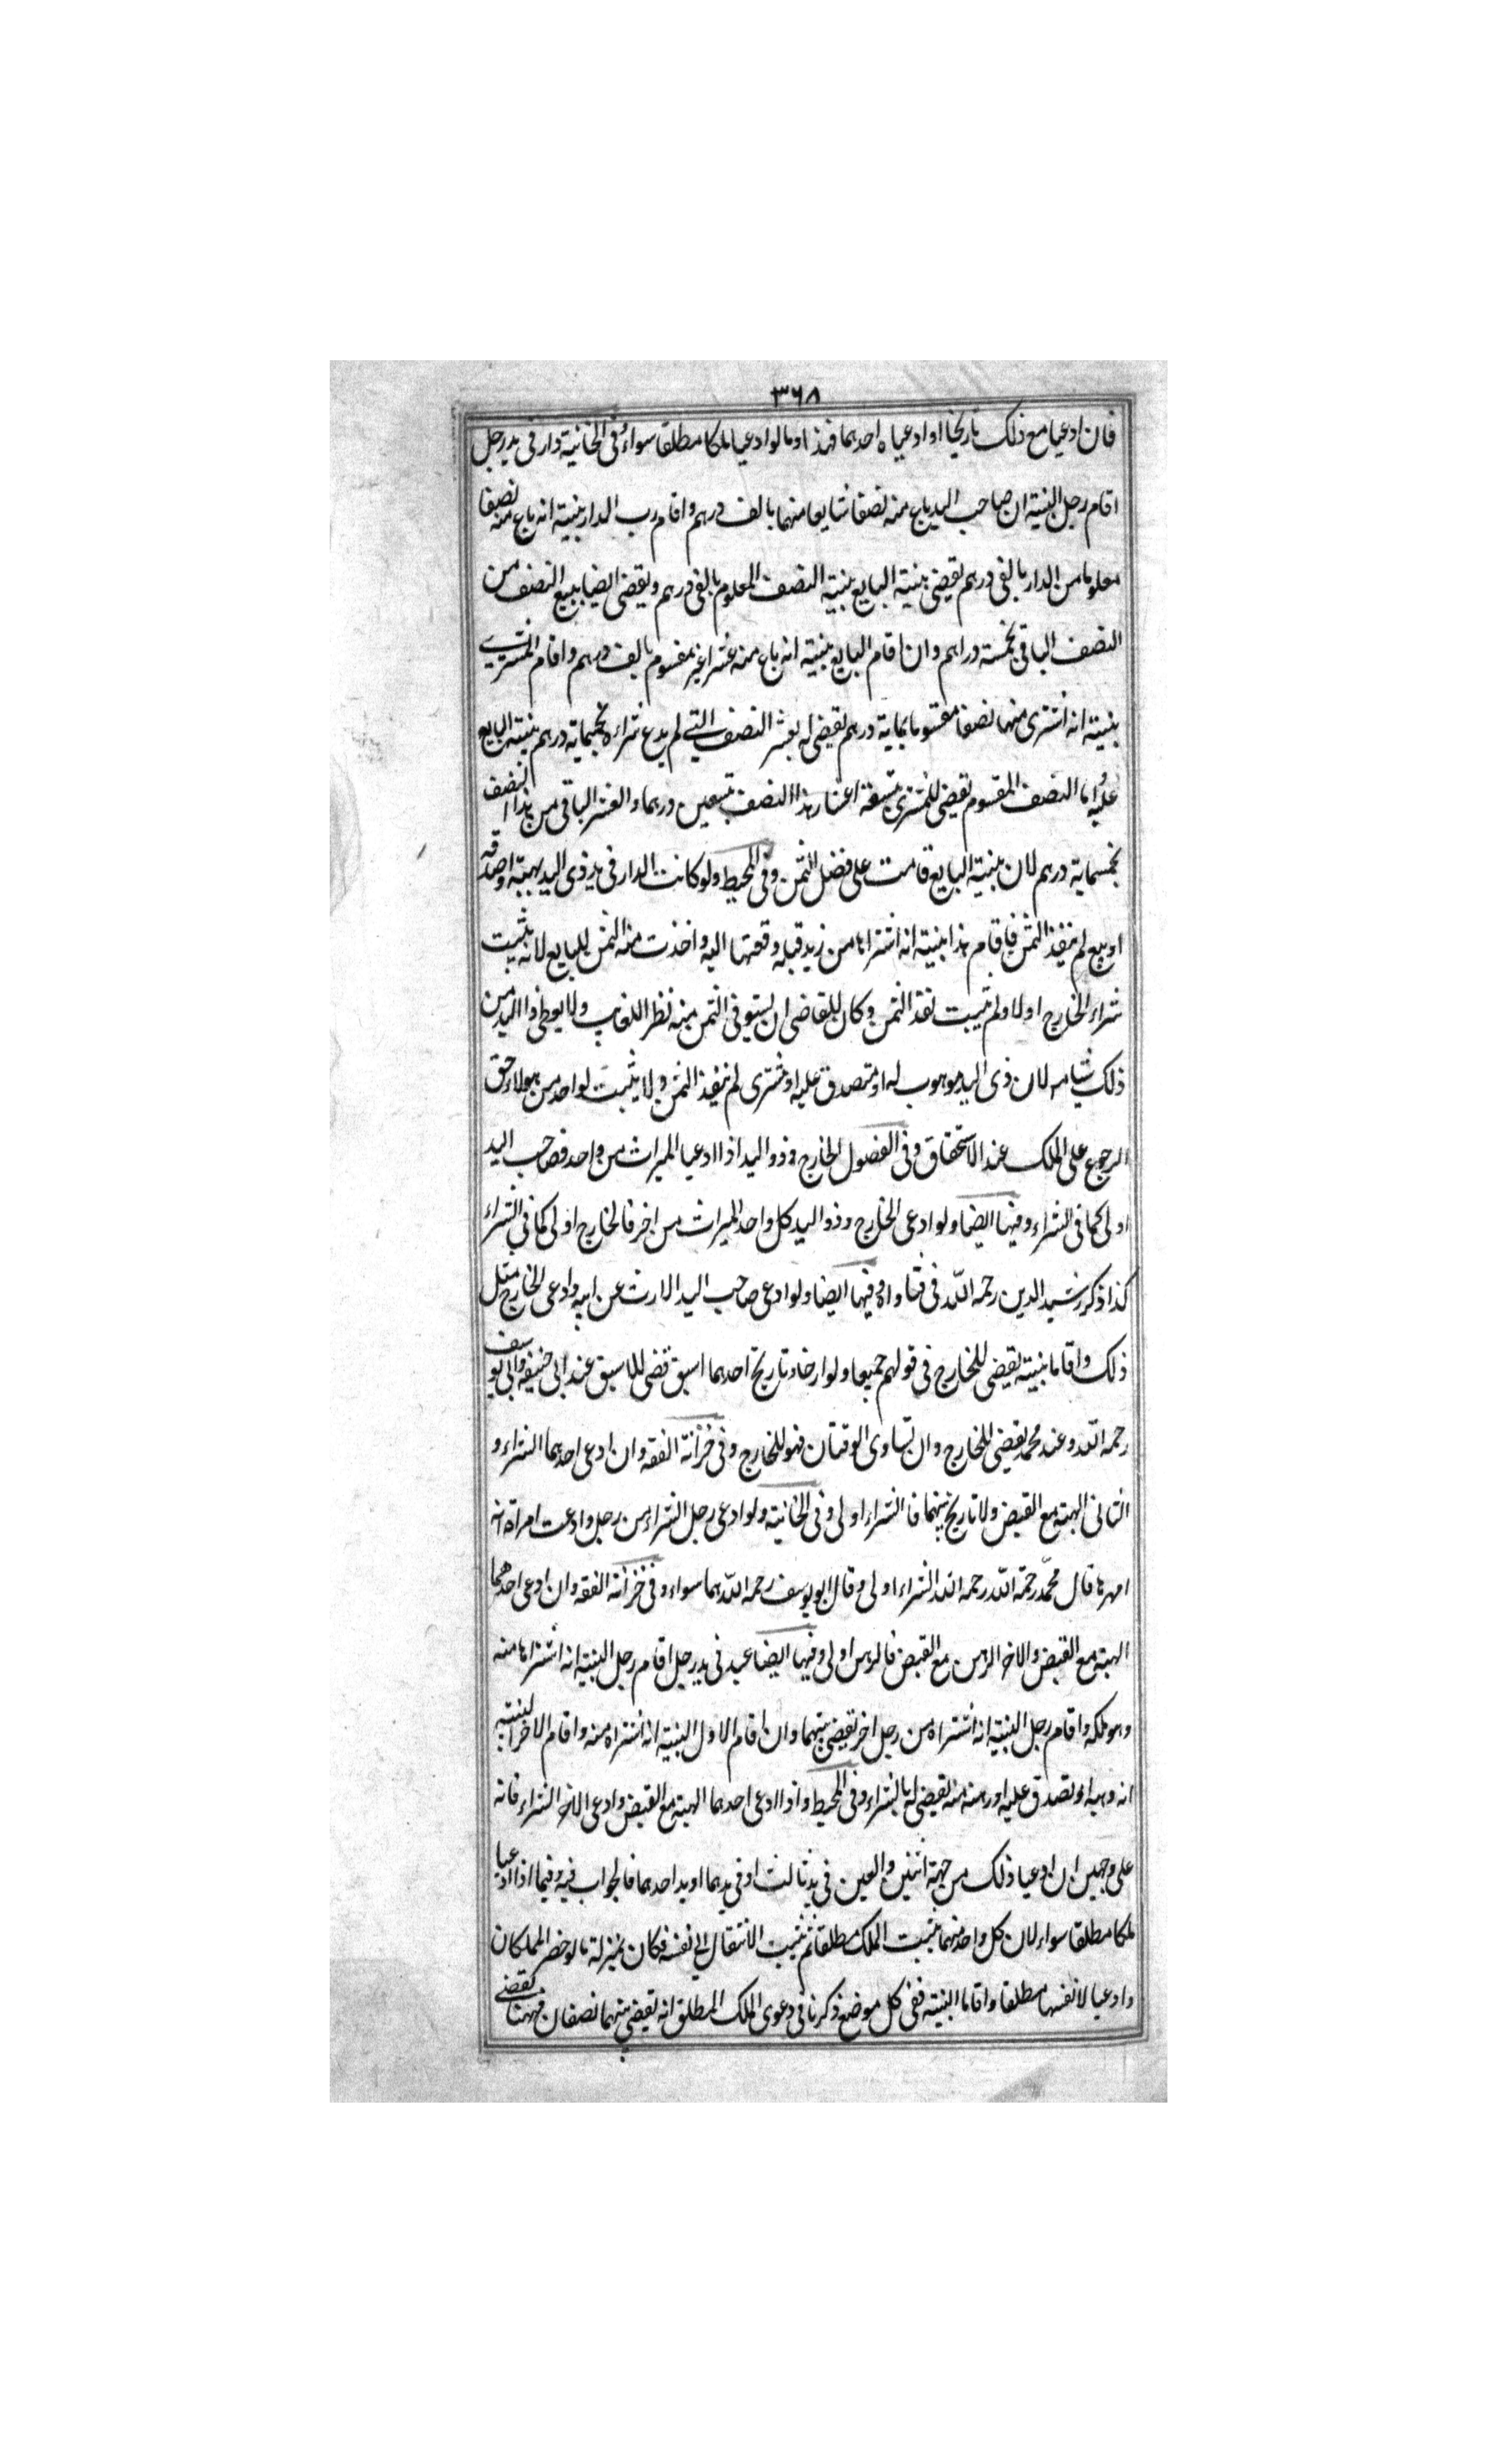 ٣٦٨
فان ادعيا مع ذلك تاريخا او ادعياه احدهما فهذا وما لو ادعيا ملكا مطلقا سواء وفي الخانية دار في يد رجل
اقام رجل البينة ان صاحب اليد باع منه نصفا شايعا منهما بالف درهم واقام رب الدار بينة انه باع منه نصفا
معلوما من الدار بالفي درهم يقضي بينة البايع بينة النصف المعلوم بالفي درهم ويقضي ايضا ببيع النصف من
النصف الباقي بخمسة دراهم وان اقام البايع بينة انه باع منه عشرا غير مقسوم بالف درهم واقام المشتري
بينة انه اشترى منهما نصفا مقسوما بماية درهم يقضي له بعشر النصف التي لم يدع شراءه بخمسماية درهم بينة البايع
عليه اما النصف المقسوم يقضي للمشتري بتسعة اعشار هذا النصف بتسعين درهما والعشر الباقي من هذا النصف
بخمسماية درهم لان بينة البايع قامت على فضل الثمن وفي المحيط ولو كانت الدار في يد ذي اليد بهبة او صدقة
او بيع لم ينقد الثمن فاقام هذا بينة انه اشتراها من زيد قبله وقعتها اليه واخذت منه الثمن للبايع لانه يثبت
شراء الخارج اولا ولم يثبت نقد الثمن وكان للقاضي ان يستوفي الثمن منه نظر اللغايب ولا يعطي ذا اليد من
ذلك شيا مر لان ذي اليد موهوب له او متصدق عليه او مشتري لم ينقد الثمن ولا يثبت لواحد من هولاء حق
الرجوع على الملك عند الاستحقاق وفي الفصول الخارج وذو اليد اذا ادعيا الميراث من واحد فصاحب اليد
اولى كما في الشراء وفيها ايضا ولو ادعى الخارج وذو اليد كل واحد الميراث من اخر فالخارج اولى كما في الشراء
كذا ذكر رشيد الدين رحمه الله في فتاواه وفيها ايضا ولو ادعى صاحب اليد الارث عن ابيه وادعى الخارج مثل
ذلك واقاما بينة يقضي للخارج في قولهم جميعا ولو ارخا وتاريخ احدهما اسبق قضي للاسبق عند ابي حنيفه وابي يوسف
رحمه الله وعند محمد يقضي للخارج وان تساوى الوقتان فهو للخارج وفي خزانة الفقه وان ادعى احدهما الشراء و
الثاني الهبة مع القبض ولا تاريخ بينهما فالشراء اولى وفي الخانية ولو ادعى رجل الشراء من رجل وادعت امراة انه
امهرها قال محمد رحمة الله رحمه الله الشراء اولى وقال ابو يوسف رحمه الله هما سواء وفي خزانة الفقه وان ادعى احدهما
الهبة مع القبض والاخر الرهن مع القبض فالرهن اولى وفيها ايضا عبد في يد رجل اقام رجل البينة انه اشتراها منه
وهو ملكه واقام رجل البينة انه اشتراه من رجل اخر يقضي بينهما وان اقام الاول البينة انه اشتراه منه واقام الاخر البينة
انه وهبه او تصدق عليه او رهنه منه يقضي له بالشراء وفي المحيط واذا ادعى احدهما الهبة مع القبض وادعى الاخر الشراء فانه
على وجهين ان ادعيا ذلك من جهة اثنين والعين في يد ثالث او في يدهما او يد احدهما فالجواب فيه وفيما اذا ادعيا
ملكا مطلقا سواء لان كل واحد منهما يثبت الملك مطلقا ثم يثبت الانتقال الى نفسه فكان بمنزلة ما لو حضر المملكان
وادعيا لانفسهما مطلقا واقاما البينة ففي كل موضع ذكرنا في دعوى الملك المطلق انه يقضي بينهما نصفان فههنا يقضي